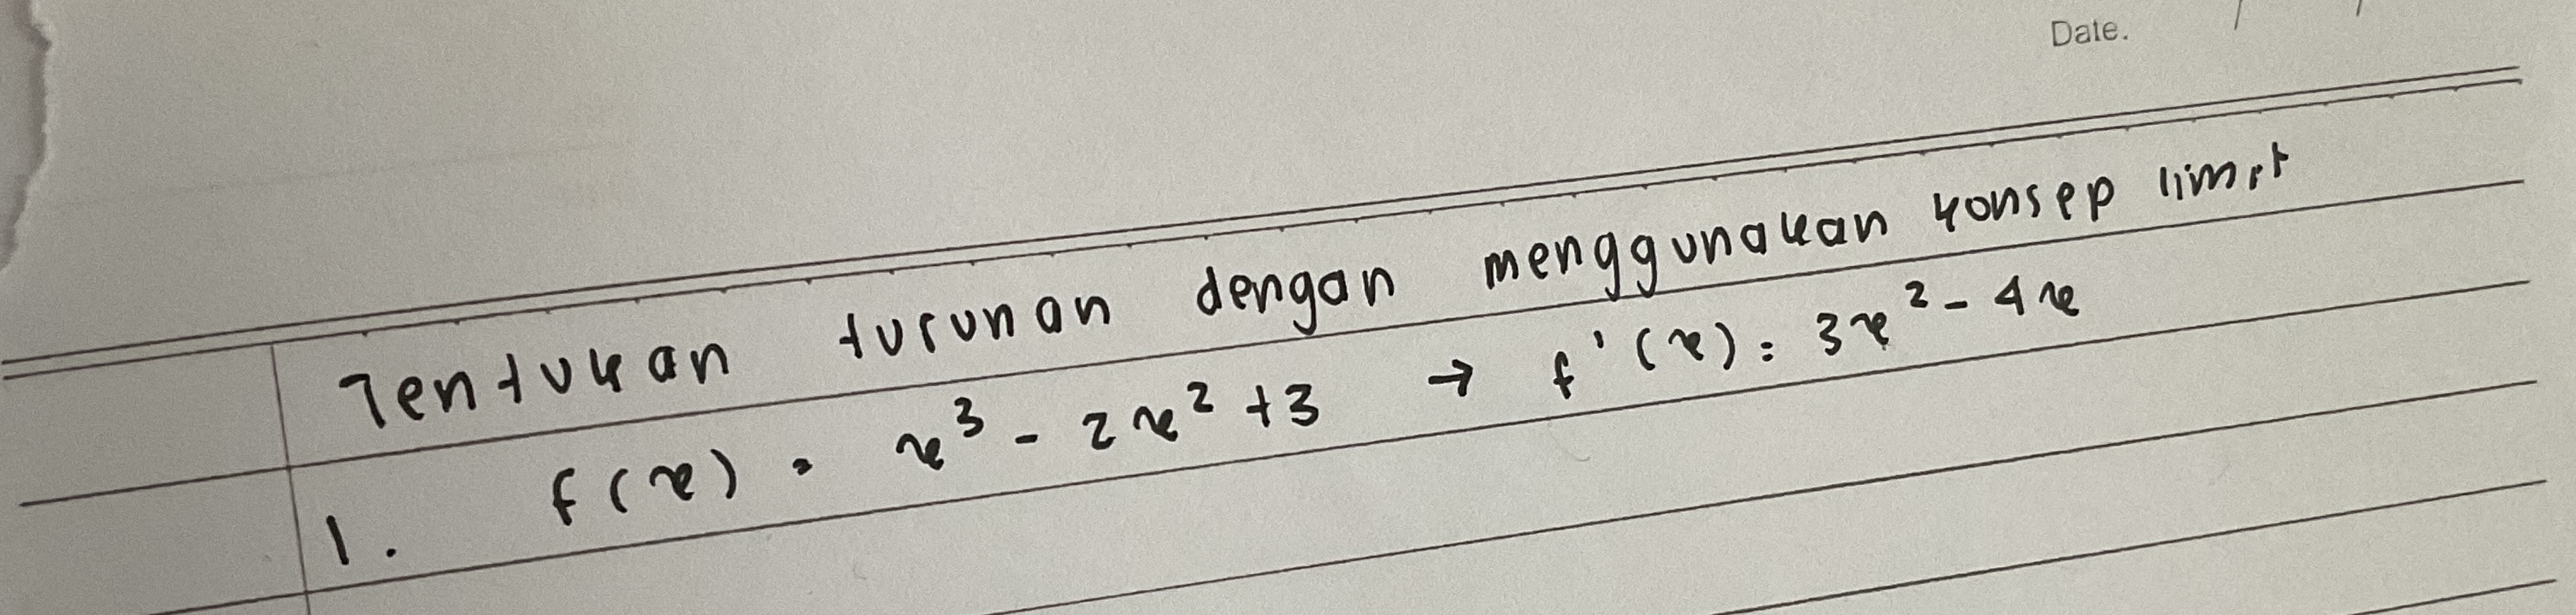 Date. / /
Tentukan turunan dengan menggunakan konsep limit
1. f(x) = x³ - 2x² + 3 → f'(x) = 3x² - 4x